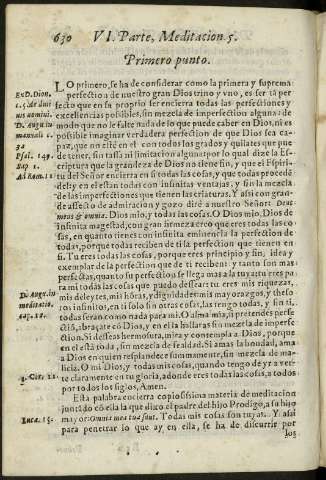 630 VI. Parte, Meditacion 5.
Primero punto.
LO primero, se ha de considerar como la primera y suprema
perfection de nuestro gran Dios trino y vno, es ser tã per
fecto que en su proprio ser encierra todas las perfectiones y
excellencias possibles, sin mezcla de imperfection alguna: de
modo que no le falte nada de lo que puede caber en Dios, ni es
possible imaginar verdadera perfection de que Dios sea ca-
paz, que no esté en el con todos los grados y quilates que pue
de tener, sin tassa ni limitacion alguna: por lo qual dize la Es-
criptura que la grandeza de Dios no tiene fin, y que el Espiri-
tu del Señor encierra en si todas las cosas, y que todas procedẽ
del, y en el estan todas con infinitas ventajas, y sin la mezcla
de las imperfectiones que tienen las criaturas. Y assi con gran-
de affecto de admiracion y gozo diré a nuestro Señor: Deus
meus & omnia. Dios mio, y todas las cosas. O Dios mio, Dios de
infinita magestad, con gran firmeza creo que eres todas las co
sas, en quanto tienes con infinita eminencia la perfection de
todas, porque todas reciben de ti la perfection que tienen en
si. Tu eres todas las cosas, porque eres principio y fin, idea y
exemplar de la perfection que de ti reciben: y tanto son mas
perfectas, quanto su perfectiõ se llega mas a la tuya: tu eres pa
ra mi todas las cosas que puedo dessear: tu eres mis riquezas,
mis deleytes, mis hõras, y dignidades mis mayorazgos, y theso-
ros infinitos, en ti solo sin otras cosas, las tengo todas, y sin ti,
todas seran como nada para mi. O alma mia, si pretendes perfe
ctiõ, abraçate cõ Dios, y en el la hallaras sin mezcla de imperfe
ction. Si desseas hermosura, mira y contempla a Dios, porque
en el está toda, sin mezcla de fealdad. Si amas la bondad, ama
a Dios en quien resplandece summamente, sin mezcla de ma-
licia. O mi Dios, y todas mis cosas, quando tengo de yr a ver-
te claramente en tu gloria, adonde eres todas las cosas, a todos
por todos los siglos, Amen.
Esta palabra encierra copiosissima materia de meditacion
juntando cõ ella la que dixo el padre del hijo Prodigo, a su hijo
mayor: Omnia mea tua sunt. Todas mis cosas son tuyas. Y assi
para penetrar lo que ay en ella, se ha de discurrir por
los
Ex D. Dion.
c. 5. de diui
nis nomini.
D. Aug. in
manuali c.
Psal. 149.
Sap. 1.
Ad Rom. 11
D. Aug. in
meditatio.
1. Cor. 15.
Luca. 15.